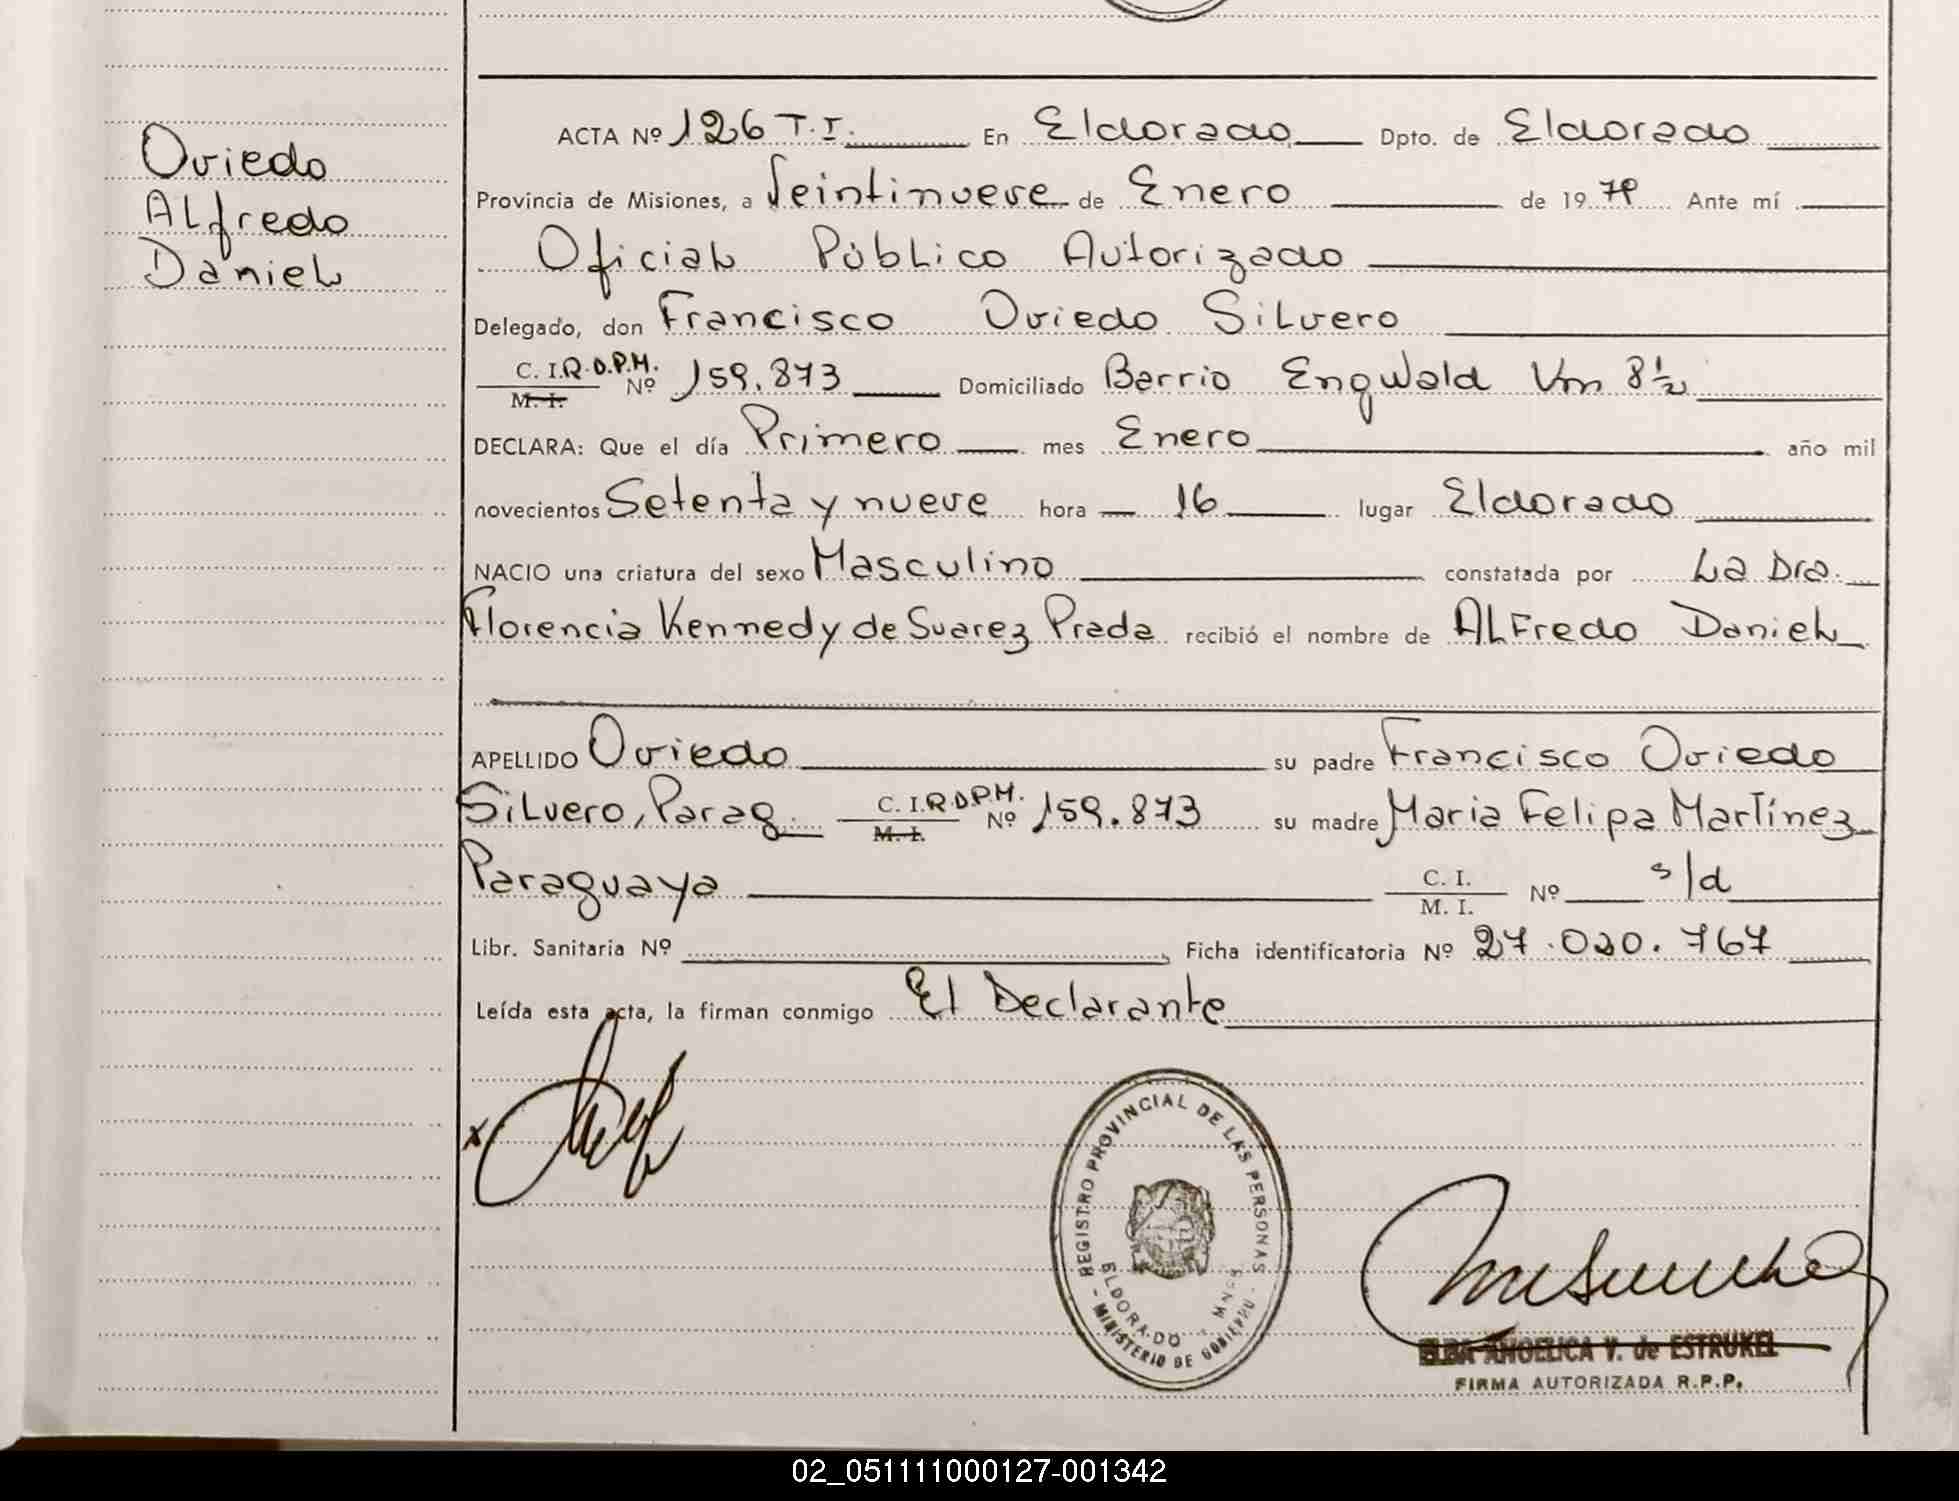 Oviedo
Alfredo
Daniel
ACTA Nº 126 T.I. En Eldorado Dpto. de Eldorado
Provincia de Misiones, a Veintinueve de Enero de 1979 Ante mí
Oficial Público Autorizado
Delegado, don Francisco Oviedo Silvero
C. I.R.D.P.M.
M. I. Nº 159.873 Domiciliado Barrio Engwald Km 8½
DECLARA: Que el día Primero mes Enero año mil
novecientos Setenta y nueve hora 16 lugar Eldorado
NACIO una criatura del sexo Masculino constatada por La Dra.
Florencia Kennedy de Suarez Prada recibió el nombre de Alfredo Daniel
APELLIDO Oviedo su padre Francisco Oviedo
Silvero, Parag. C. I.R.D.P.M. M. I. Nº 159.873 su madre Maria Felipa Martínez
Paraguaya C. I. M. I. Nº s/d
Libr. Sanitaria Nº Ficha identificatoria Nº 27.020.767
Leída esta acta, la firman conmigo El Declarante
x
REGISTRO PROVINCIAL DE LAS PERSONAS
ELDORADO MNES
- MINISTERIO DE GOBIERNO -
ELBA ANGELICA V. de ESTRUKEL
FIRMA AUTORIZADA R.P.P.
02_051111000127-001342